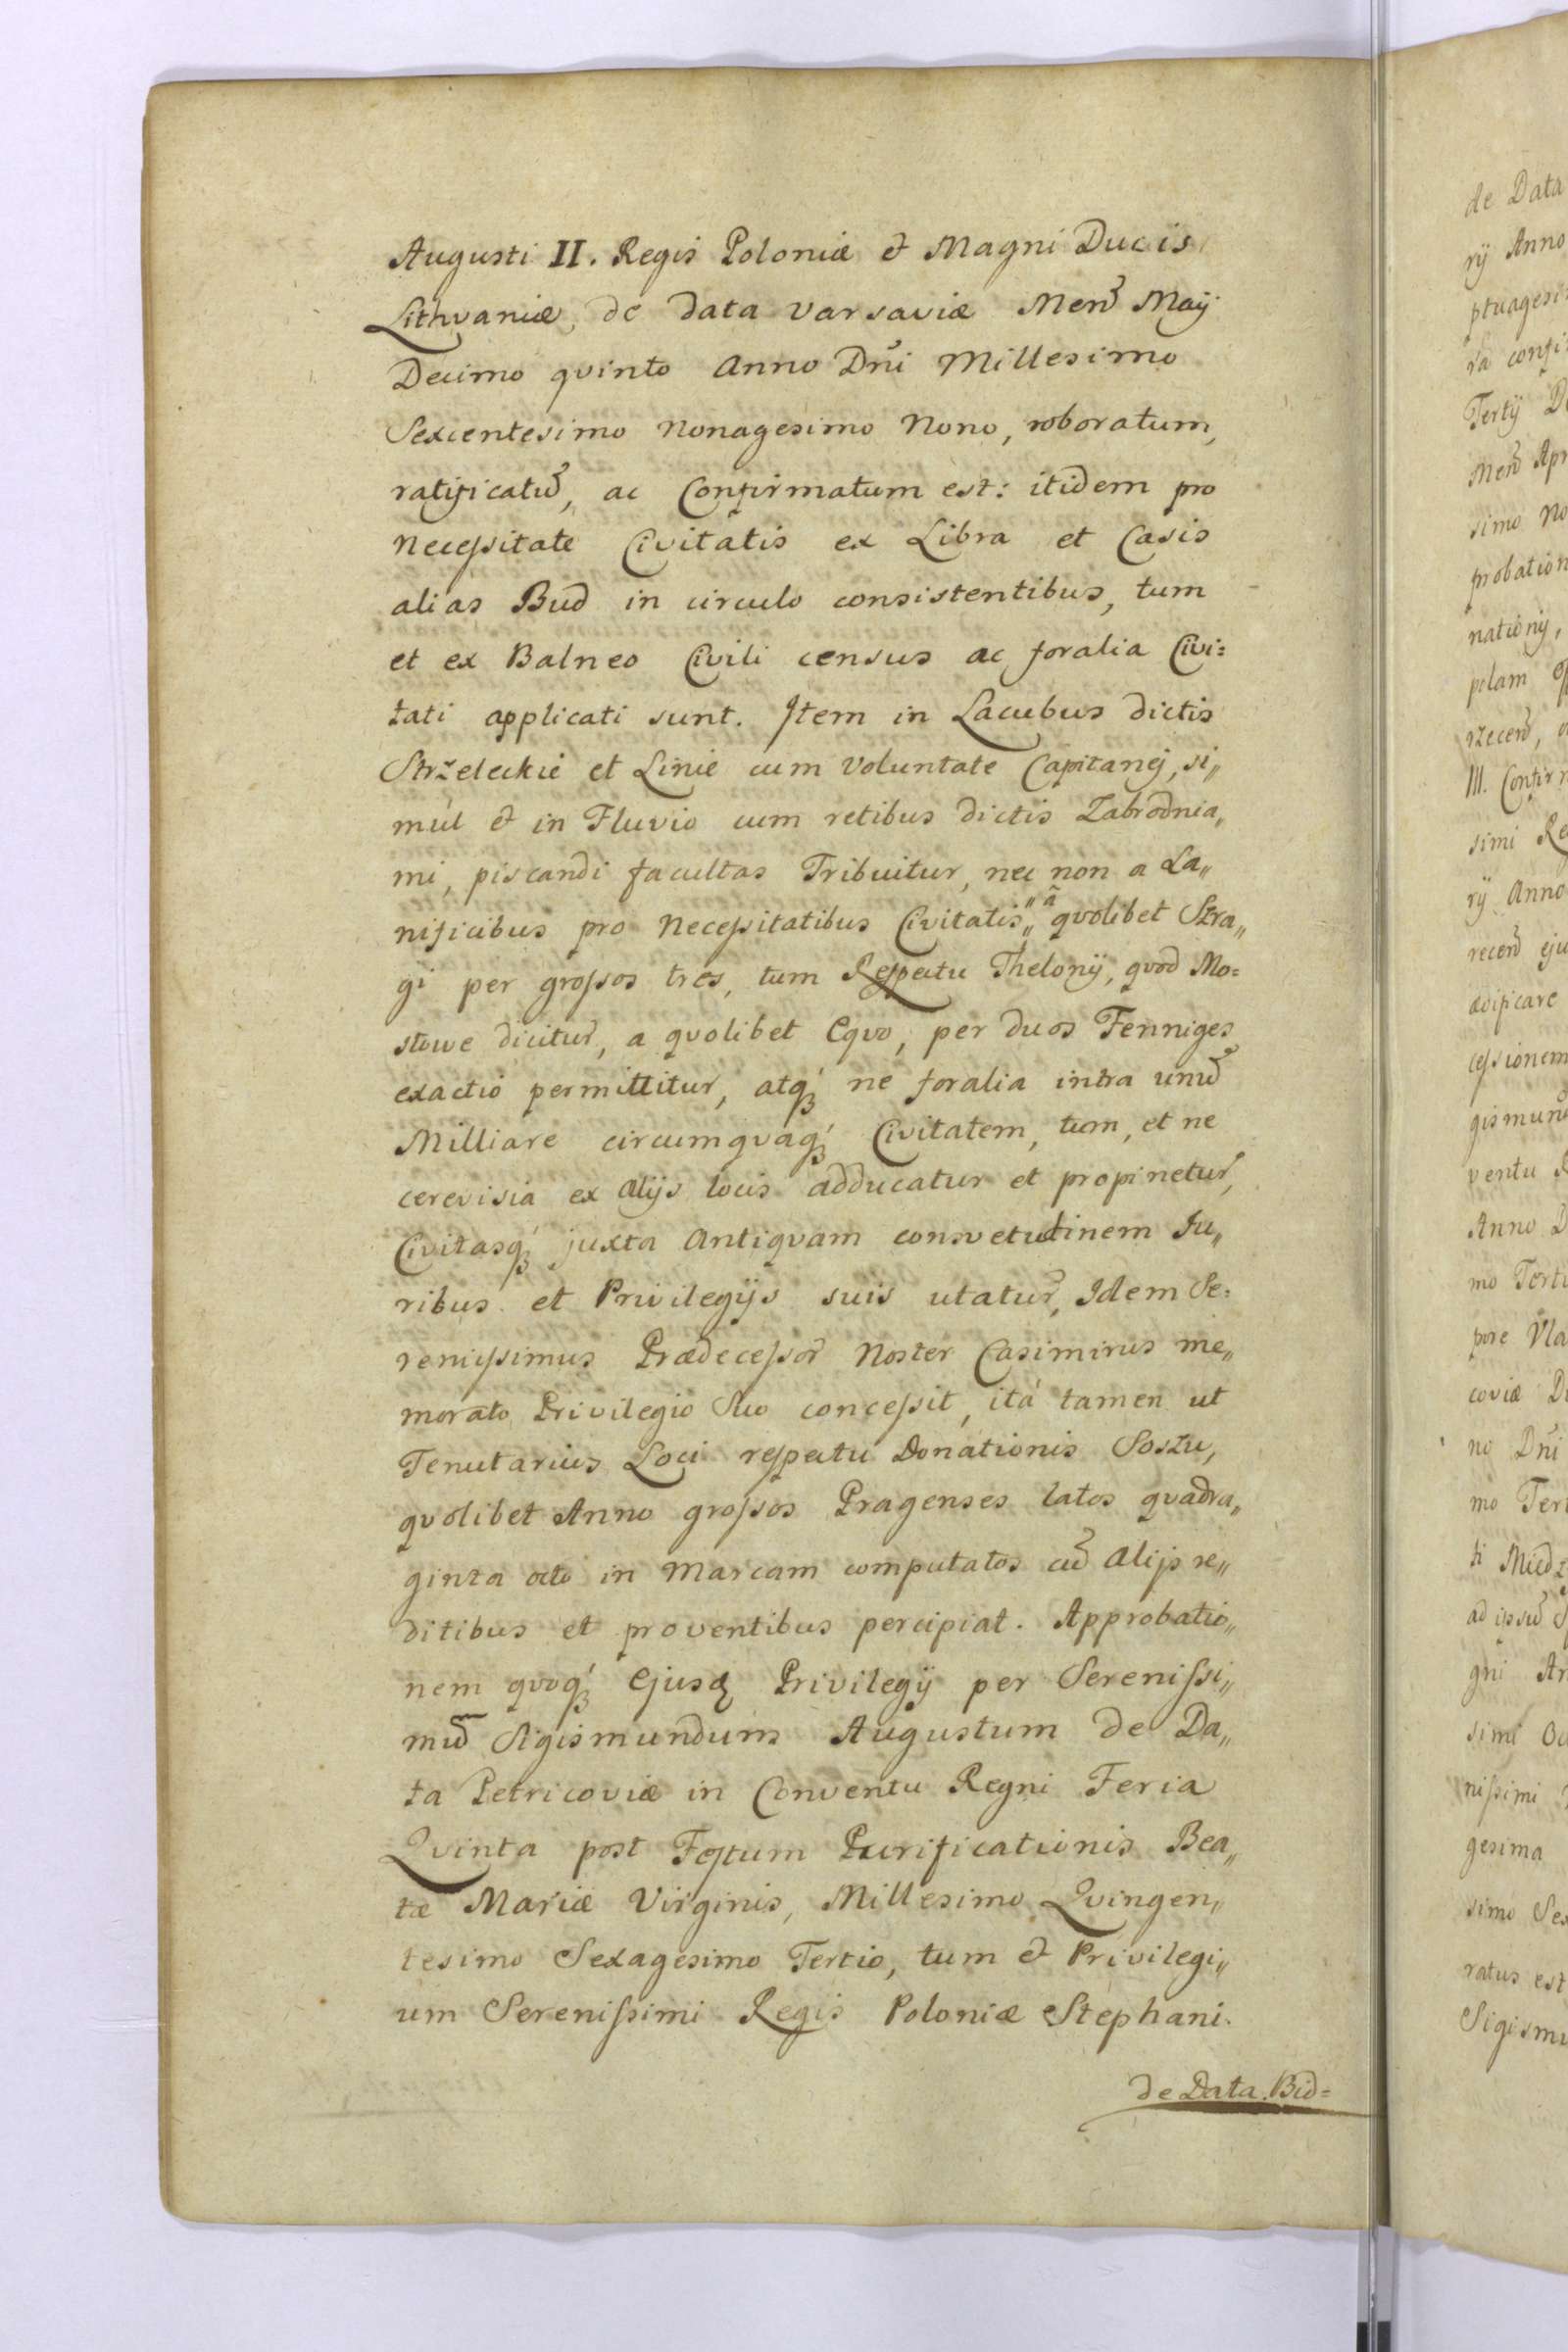 Augusti II. Regis Poloniæ et Magni Ducis
Lithvaniæ, de data Varsaviæ Mens̃ Maij
Decimo quinto Anno Dñi Millesimo
Sexcentesimo Nonagesimo Nono, roboratum,
ratificatũ, ac Confirmatum est: itidem pro
Necessitate Civitatis ex Libra et Casis
alias Bud in circulo consistentibus, tum
et ex Balneo Civili census ac foralia Civi=
tati applicati sunt. Item in Lacubus dictis
Strzeleckie et Linie cum Voluntate Capitanej, si„
mul et in Fluvio cum retibus dictis Zabrodnia„
mi, piscandi facultas Tribuitur, nec non a La„
nificibus pro Necessitatibus Civitatis „ã„ qvolibet Stra„
gi per grossos tres, tum Respectu Thelonij, qvod Mo=
stowe dicitur, a qvolibet Eqvo, per duos Fenniges
exactio permittitur, atq́; ne foralia intra unũ
Milliare circumqvaq́; Civitatem, tum, et ne
cerevisia ex Alijs locis adducatur et propinetur,
Civitasq́; juxta Antiqvam consvetudinem Ju„
ribus et Privilegijs suis utatur, Idem Se=
renissimus Prædecessor Noster Casimirus me„
morato Privilegio Suo concessit, ità tamen ut
Tenutarius Loci respectu Donationis Sostu,
qvolibet Anno grossos Pragenses latos qvadra„
ginta octo in Marcam computatos cũ Alijs re„
ditibus et proventibus percipiat. Approbatio„
nem qvoq́; Ejusd Privilegij per Serenissi„
mũ Sigismundum Augustum de Da„
ta Petricoviæ in Conventu Regni Feria
Qvinta post Festum Purificationis Bea„
tæ Mariæ Virginis, Millesimo Qvingen„
tesimo Sexagesimo Tertio, tum et Privilegi„
um Serenissimi Regis Poloniæ Stephani.
de Data Bid=
de Data
rij Anno
ptuagesi
ra confi
Tertij D
Mens̃ Apr
simo No
probation
nationij,
pelam
rzecens̃,
III. Confir
simi Re
rij Anno
recens̃ eju
ædificare
cessionem
gismund
ventu R
Anno D
mo Terti
pore Vla
coviæ D
no Dñi
mo Ter
ti Miedz
ad issũ S
gni
simi Oc
nissimi
gesima
simo Sex
ratus est
Sigismu